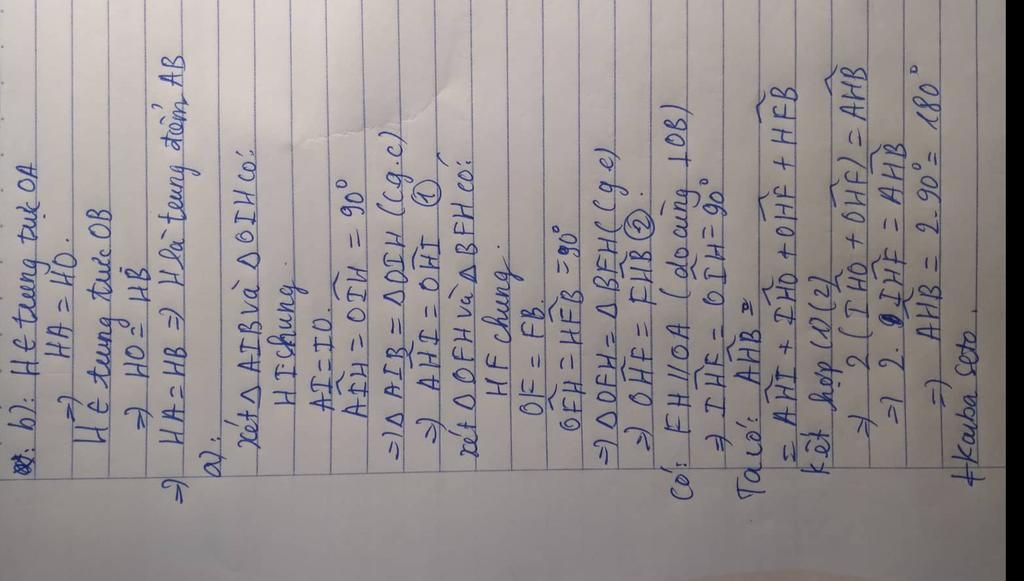 b): H∈ trung trực OA
=> HA = HO.
H∈ trung trực OB
=> HO = HB
=> HA = HB => H là trung điểm AB
a):
xét △ AIB và △ OIH có:
HI chung
AI = IO.
AIH = OIH = 90°
=> △ AIB = △ OIH (c.g.c)
=> AHI = OHI ①
xét △ OFH và △ BFH có:
HF chung
OF = FB.
OFH = HFB = 90°
=> △ OFH = △ BFH (c.g.c)
=> OHF = FHB ②
Có: FH // OA (do cùng ⊥ OB)
=> IHF = OIH = 90°
Ta có: AHB =
= AHI + IHO + OHF + HFB
Kết hợp (1) (2)
=> 2 (IHO + OHF) = AHB
=> 2. IHF = AHB
=> AHB = 2.90° = 180°
+ Kaiba Seto.